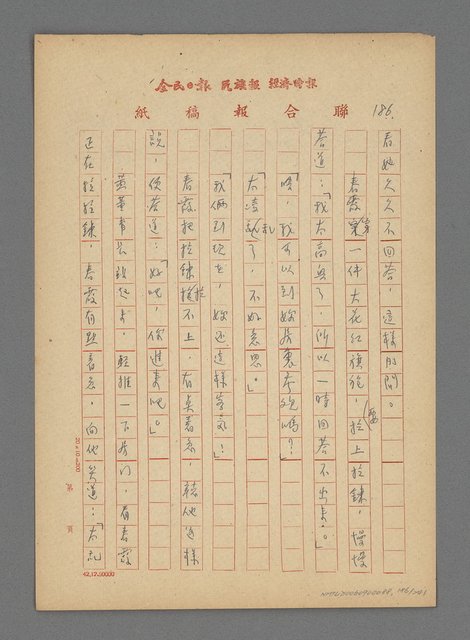 全民日報 民族報 經濟時報
聯合報稿紙
186.
看她久久不回答，這樣的問。
春霞穿一件大花紅旗袍，拉上拉鍊，慢慢
答道：「我太高興了，所以一時回答不出來。」
「唔，我可以到妳房裏參觀嗎？」
「太凌亂了，不好意思。」
「我倆到現在，妳還這樣客氣！」
春霞把拉鍊拉不上，有點着急，聽他這樣
說，便答道：「好吧，你進來吧。」
黃華青站起來，輕推一下房門，看春霞
正在拉拉鍊，春霞有點着急，向他笑道：「太亂
第 號
42.12.50000